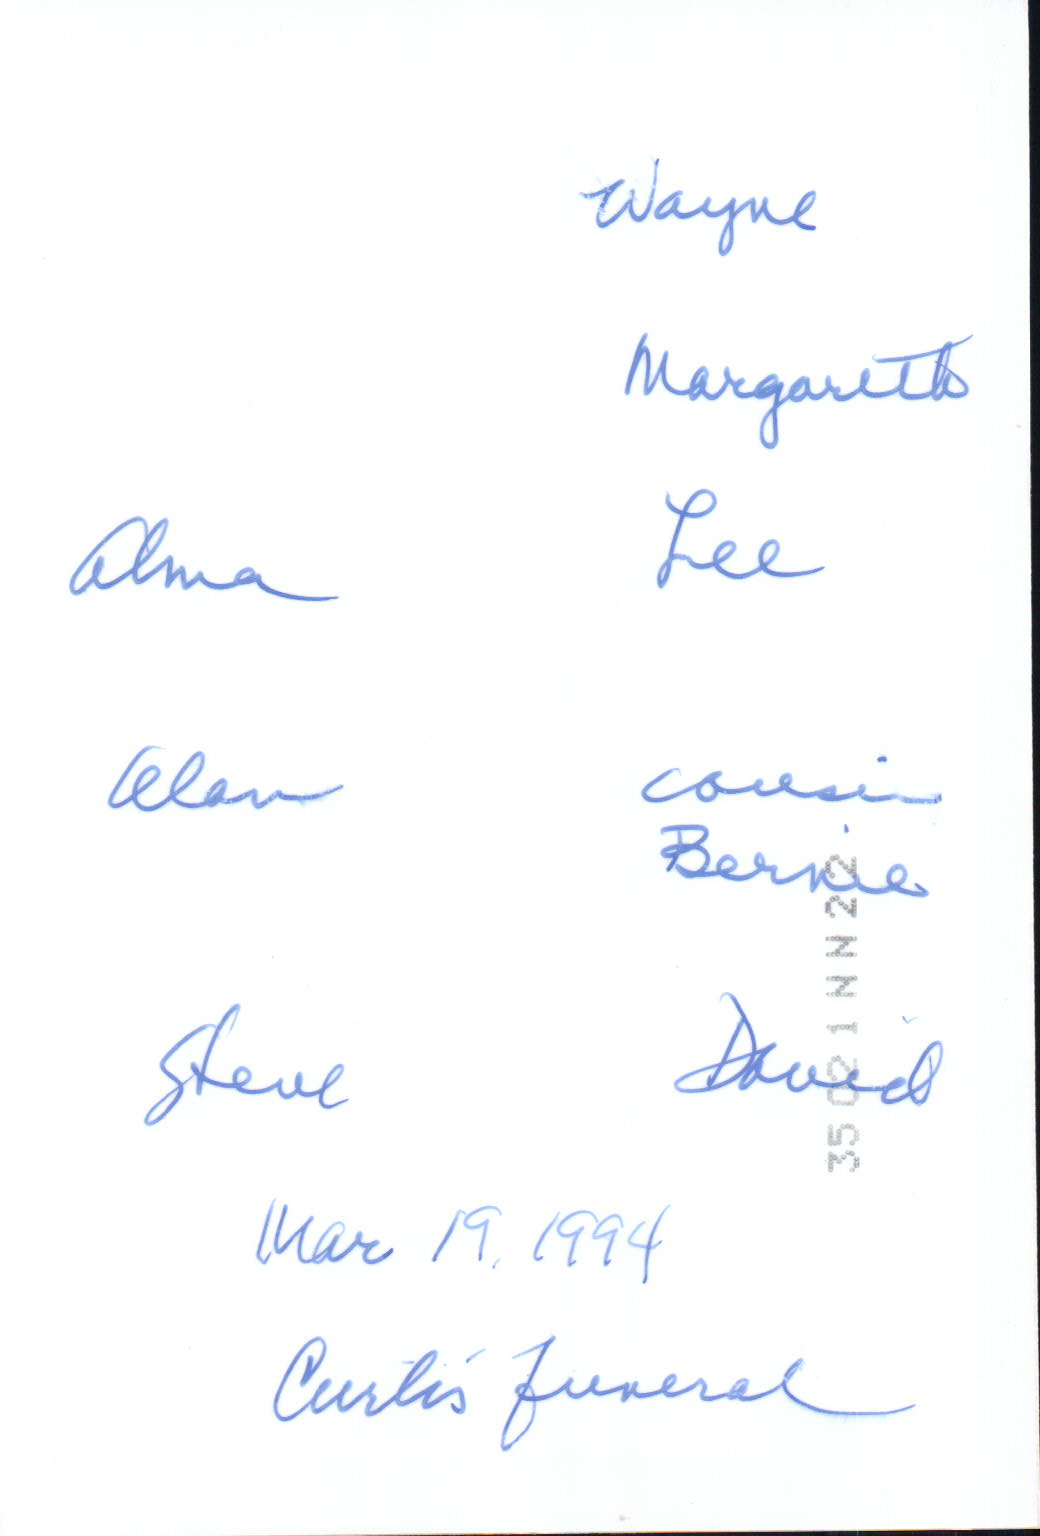 Wayne
Margareth
Alma Lee
Alan cousin
Bernie
Steve David
Mar 19, 1994
Curtis funeral
35 02 1 N N 22